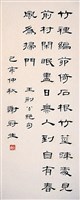 竹裡編茆倚石根竹莖疏處見
前村閒眠盡日無人到自有春
風為掃門 王荊公絕句
仲秋 謝冠生